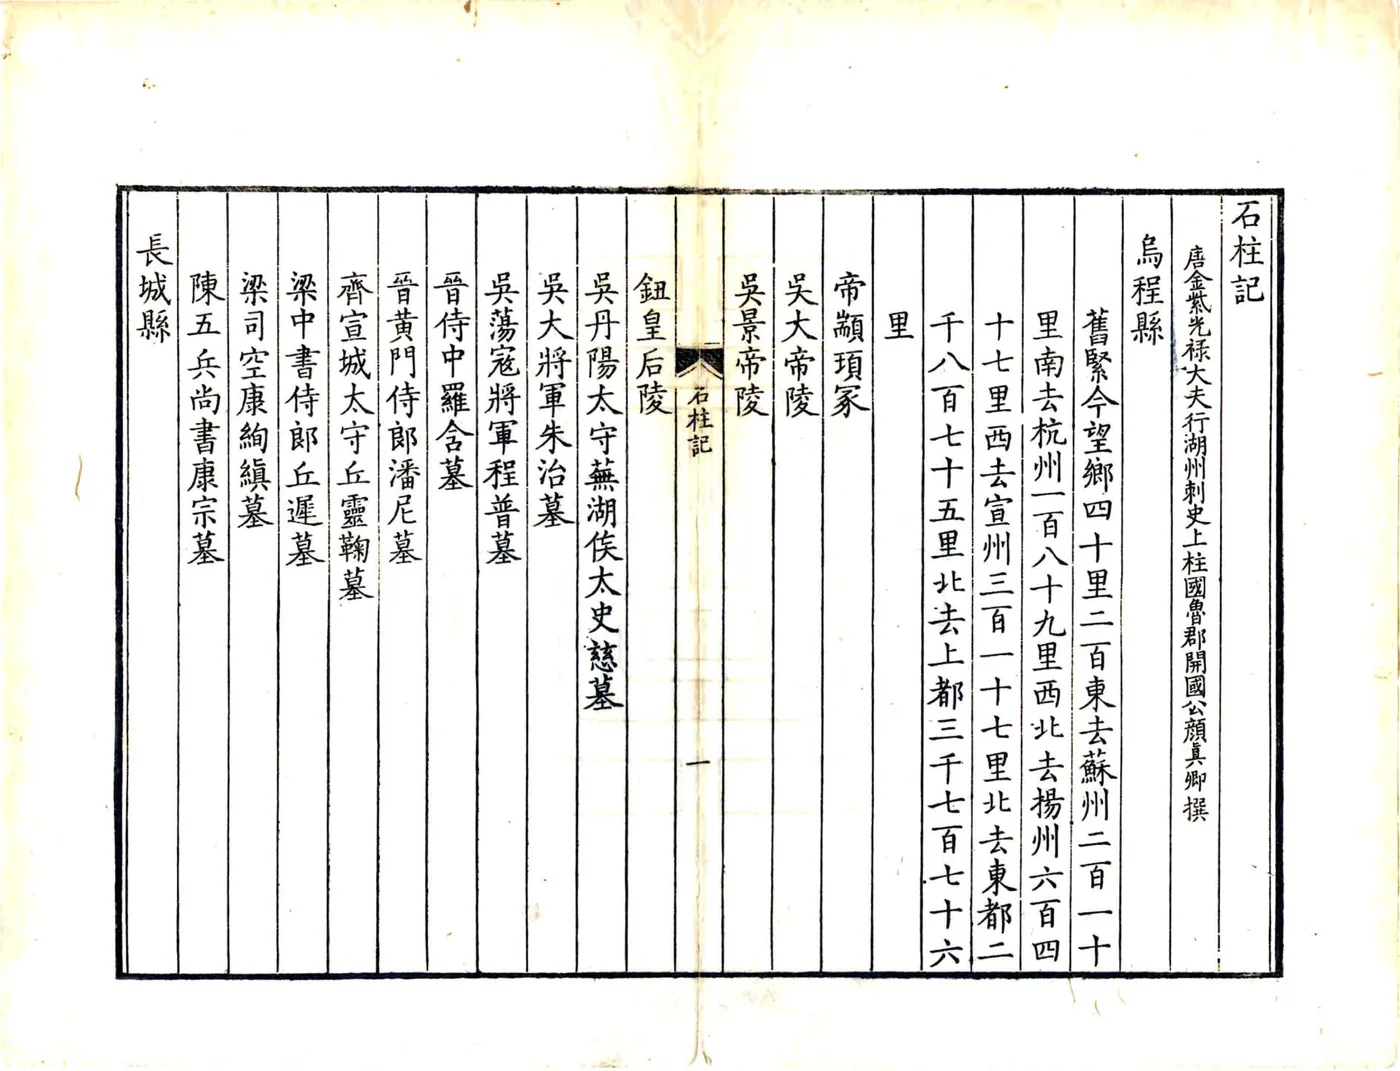 石柱記
唐金紫光祿大夫行湖州刺史上柱國魯郡開國公顏眞卿撰
烏程縣
舊緊今望鄉四十里二百東去蘇州二百一十
里南去杭州一百八十九里西北去揚州六百四
十七里西去宣州三百一十七里北去東都二
千八百七十五里北去上都三千七百七十六
里
帝顓頊冢
吳大帝陵
吳景帝陵
石柱記
一
鈕皇后陵
吳丹陽太守蕪湖侯太史慈墓
吳大將軍朱治墓
吳蕩寇將軍程普墓
晉侍中羅含墓
晉黃門侍郎潘尼墓
齊宣城太守丘靈鞠墓
梁中書侍郎丘遲墓
梁司空康絢縝墓
陳五兵尚書康宗墓
長城縣